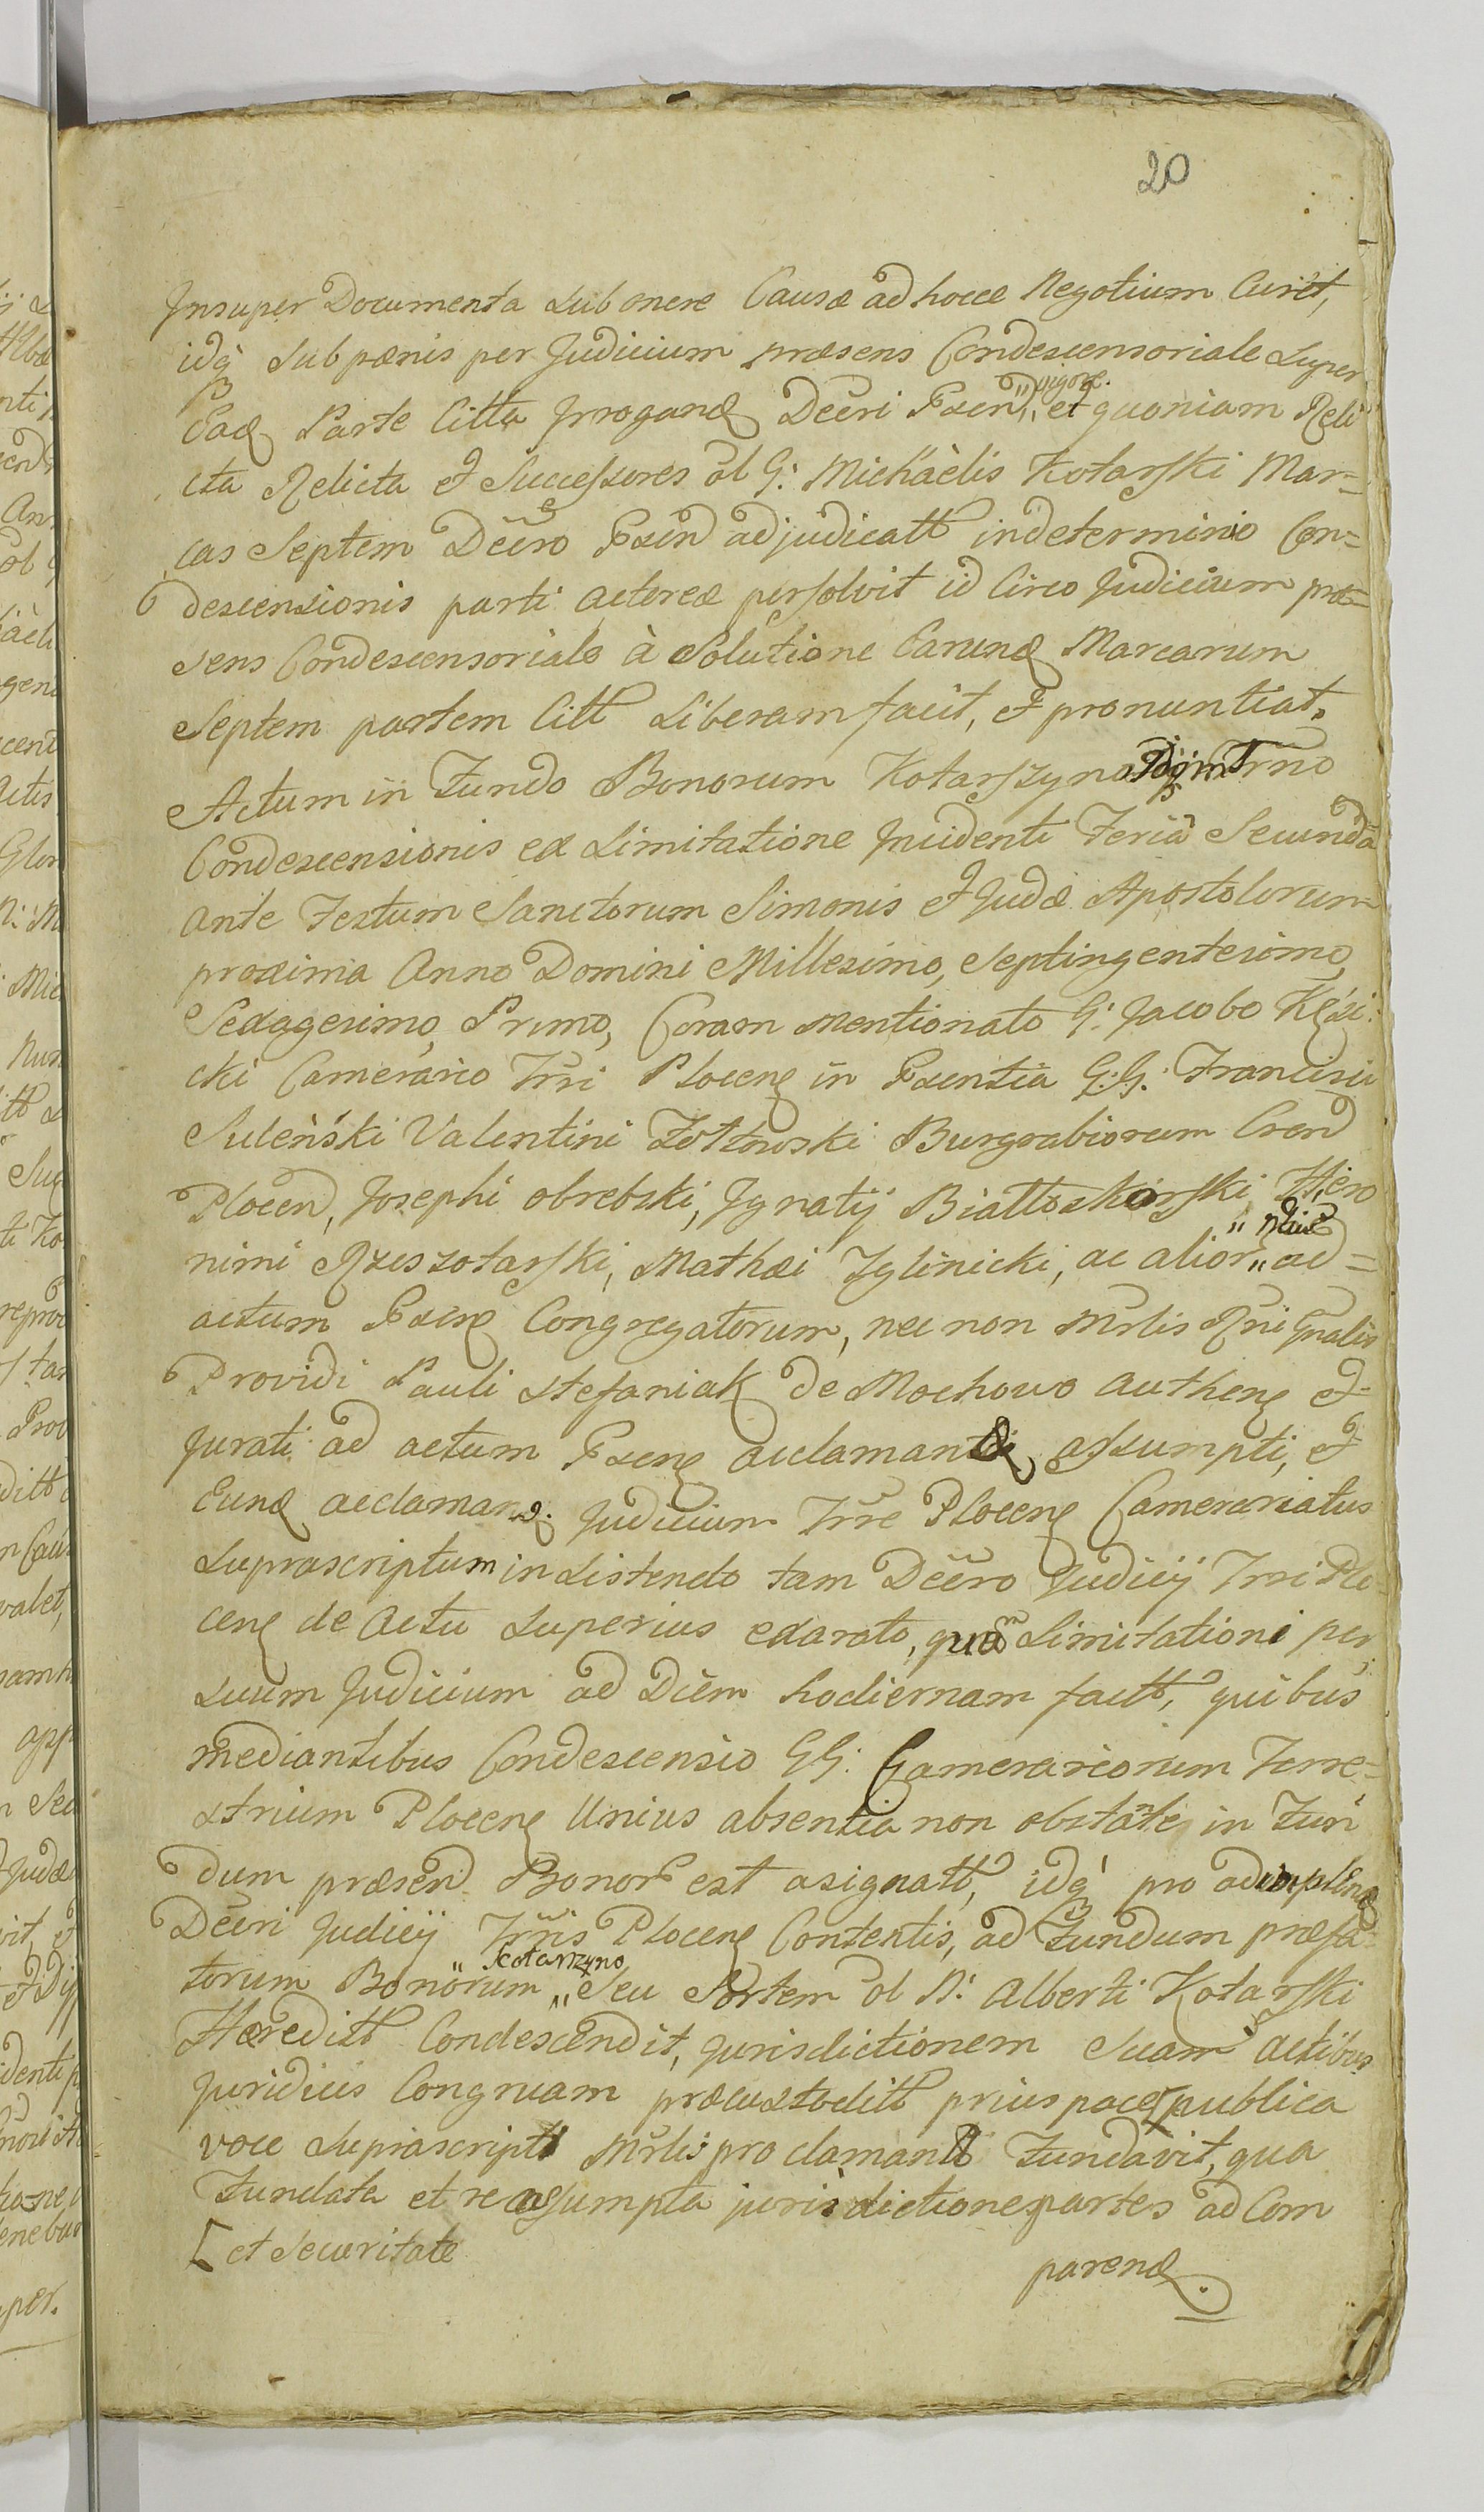 20
Insuper Documenta sub onere Causæ ad hocce Negotium Curet,
idq́ Sub pœnis per Judicium præsens Condescensoriale super
Ead Parte Citta Irrogand Decri Pxen „vigore.„ et quoniam Reli
cta Relicta et Successores ol G: Michäelis Kotarski Mar=
cas Septem Decro Pxen adjudicatt in determinio Con=
descensionis parti actoreæ persolvit id Circo Judicium præ=
sens Condescensoriale à Solutione Earund Marcarum
Septem partem Citt Liberam facit, et pronuntiat.
Actum in Fundo Bonorum Kotarszyno Trño
Condescensionis ex Limitatione Incidenti Feria Secunda
ante Festum Sanctorum Simonis et Judæ Apostolorum
proxima Anno Domini Millesimo, Septingentesimo,
Sexagesimo, Primo, Coram Mentionato G: Jacobo Kęsi:
cki Camerario Trri Plocen in Pxentia G:G: Francisci
Suleński Valentini Żółtowski Burgrabiorum Cren
Plocen, Josephi obrebski, Ignatij Białłoskorski, Hiero
nimi Rzeszotarski, Mathæi Zglinicki, ac alior „ „ ad=
actum Pxen Congregatorum, nec non Mrlis Rni Gnalis
Providi Pauli Stefaniak de Mochowo authen et
Jurati ad actum Pxens acclamand assumpti, et
Eund acclamand. Judicium Trre Plocen Camerariatus
Suprascriptum insistendo tam Decro Judicij Trri Plo
cen de Actu Superius exarato, quam Limitationi per
Suum Judicium ad Diem hodiernam factt, quibus
mediantibus Condescensio GG: Camerariorum Terre=
strium Plocen Unius absentia non obstante, in Fun
dum præsen Bonor est asignatt, idq́ pro adimplend
Decri Judicij Trris Plocen Contentis, ad Fundum præfa
torum Bonorum „Kotarzyno„ Seu Sortem ol N: Alberti Kotarski
Hæreditt Condescendit, Jurisdictionem Suam actibus
Juridicis Congruam præcustoditt prius pace [ publica
voce Suprascripti Mrlis proclamantt Fundavit, qua
Fundata et reassumpta jurisdictione partes ad Com
[ et Securitate
parend.